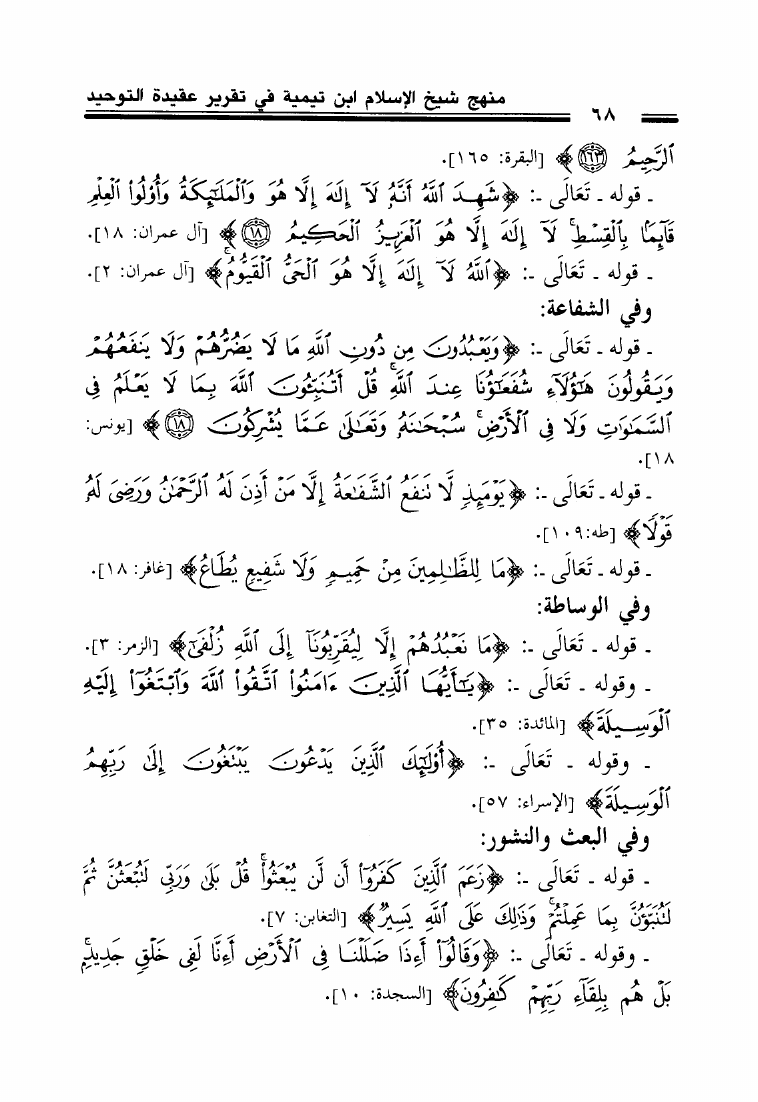 منهج شيخ الإسلام ابن تيمية في تقرير عقيدة التوحيد
٦٨
ٱلرَّحِيمُ ١٦٣﴾ [البقرة: ١٦٥].
ـ قوله ـ تَعَالَى ـ: ﴿شَهِدَ ٱللَّهُ أَنَّهُۥ لَآ إِلَٰهَ إِلَّا هُوَ وَٱلْمَلَٰٓئِكَةُ وَأُو۟لُوا۟ ٱلْعِلْمِ
قَآئِمًۢا بِٱلْقِسْطِ ۚ لَآ إِلَٰهَ إِلَّا هُوَ ٱلْعَزِيزُ ٱلْحَكِيمُ ١٨﴾ [آل عمران: ١٨].
ـ قوله ـ تَعَالَى ـ: ﴿ٱللَّهُ لَآ إِلَٰهَ إِلَّا هُوَ ٱلْحَىُّ ٱلْقَيُّومُ ۚ﴾ [آل عمران: ٢].
وفي الشفاعة:
ـ قوله ـ تَعَالَى ـ: ﴿وَيَعْبُدُونَ مِن دُونِ ٱللَّهِ مَا لَا يَضُرُّهُمْ وَلَا يَنفَعُهُمْ
وَيَقُولُونَ هَٰٓؤُلَآءِ شُفَعَٰٓؤُنَا عِندَ ٱللَّهِ ۚ قُلْ أَتُنَبِّـُٔونَ ٱللَّهَ بِمَا لَا يَعْلَمُ فِى
ٱلسَّمَٰوَٰتِ وَلَا فِى ٱلْأَرْضِ ۚ سُبْحَٰنَهُۥ وَتَعَٰلَىٰ عَمَّا يُشْرِكُونَ ١٨﴾ [يونس:
١٨].
ـ قوله ـ تَعَالَى ـ: ﴿يَوْمَئِذٍ لَّا تَنفَعُ ٱلشَّفَٰعَةُ إِلَّا مَنْ أَذِنَ لَهُ ٱلرَّحْمَٰنُ وَرَضِىَ لَهُۥ
قَوْلًا﴾ [طه: ١٠٩].
ـ قوله ـ تَعَالَى ـ: ﴿مَا لِلظَّٰلِمِينَ مِنْ حَمِيمٍ وَلَا شَفِيعٍ يُطَاعُ﴾ [غافر: ١٨].
وفي الوساطة:
ـ قوله ـ تَعَالَى ـ: ﴿مَا نَعْبُدُهُمْ إِلَّا لِيُقَرِّبُونَآ إِلَى ٱللَّهِ زُلْفَىٰٓ﴾ [الزمر: ٣].
ـ وقوله ـ تَعَالَى ـ: ﴿يَٰٓأَيُّهَا ٱلَّذِينَ ءَامَنُوا۟ ٱتَّقُوا۟ ٱللَّهَ وَٱبْتَغُوٓا۟ إِلَيْهِ
ٱلْوَسِيلَةَ﴾ [المائدة: ٣٥].
ـ وقوله ـ تَعَالَى ـ: ﴿أُو۟لَٰٓئِكَ ٱلَّذِينَ يَدْعُونَ يَبْتَغُونَ إِلَىٰ رَبِّهِمُ
ٱلْوَسِيلَةَ﴾ [الإسراء: ٥٧].
وفي البعث والنشور:
ـ قوله ـ تَعَالَى ـ: ﴿زَعَمَ ٱلَّذِينَ كَفَرُوٓا۟ أَن لَّن يُبْعَثُوا۟ ۚ قُلْ بَلَىٰ وَرَبِّى لَتُبْعَثُنَّ ثُمَّ
لَتُنَبَّؤُنَّ بِمَا عَمِلْتُمْ ۚ وَذَٰلِكَ عَلَى ٱللَّهِ يَسِيرٌ﴾ [التغابن: ٧].
ـ وقوله ـ تَعَالَى ـ: ﴿وَقَالُوٓا۟ أَءِذَا ضَلَلْنَا فِى ٱلْأَرْضِ أَءِنَّا لَفِى خَلْقٍ جَدِيدٍۭ ۚ
بَلْ هُم بِلِقَآءِ رَبِّهِمْ كَٰفِرُونَ﴾ [السجدة: ١٠].